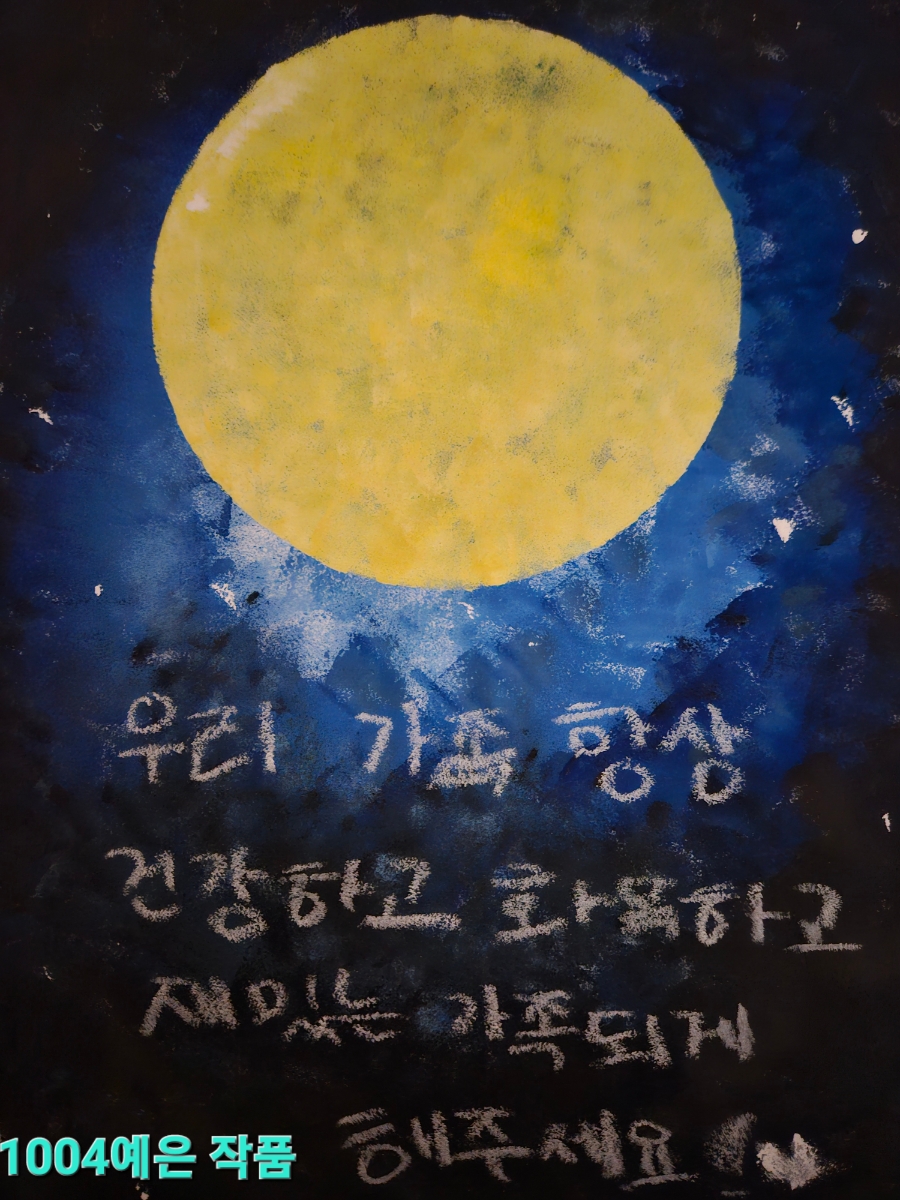 우리 가족 항상
건강하고 화목하고
재미있는 가족되게
해주세요!♥
1004예은 작품